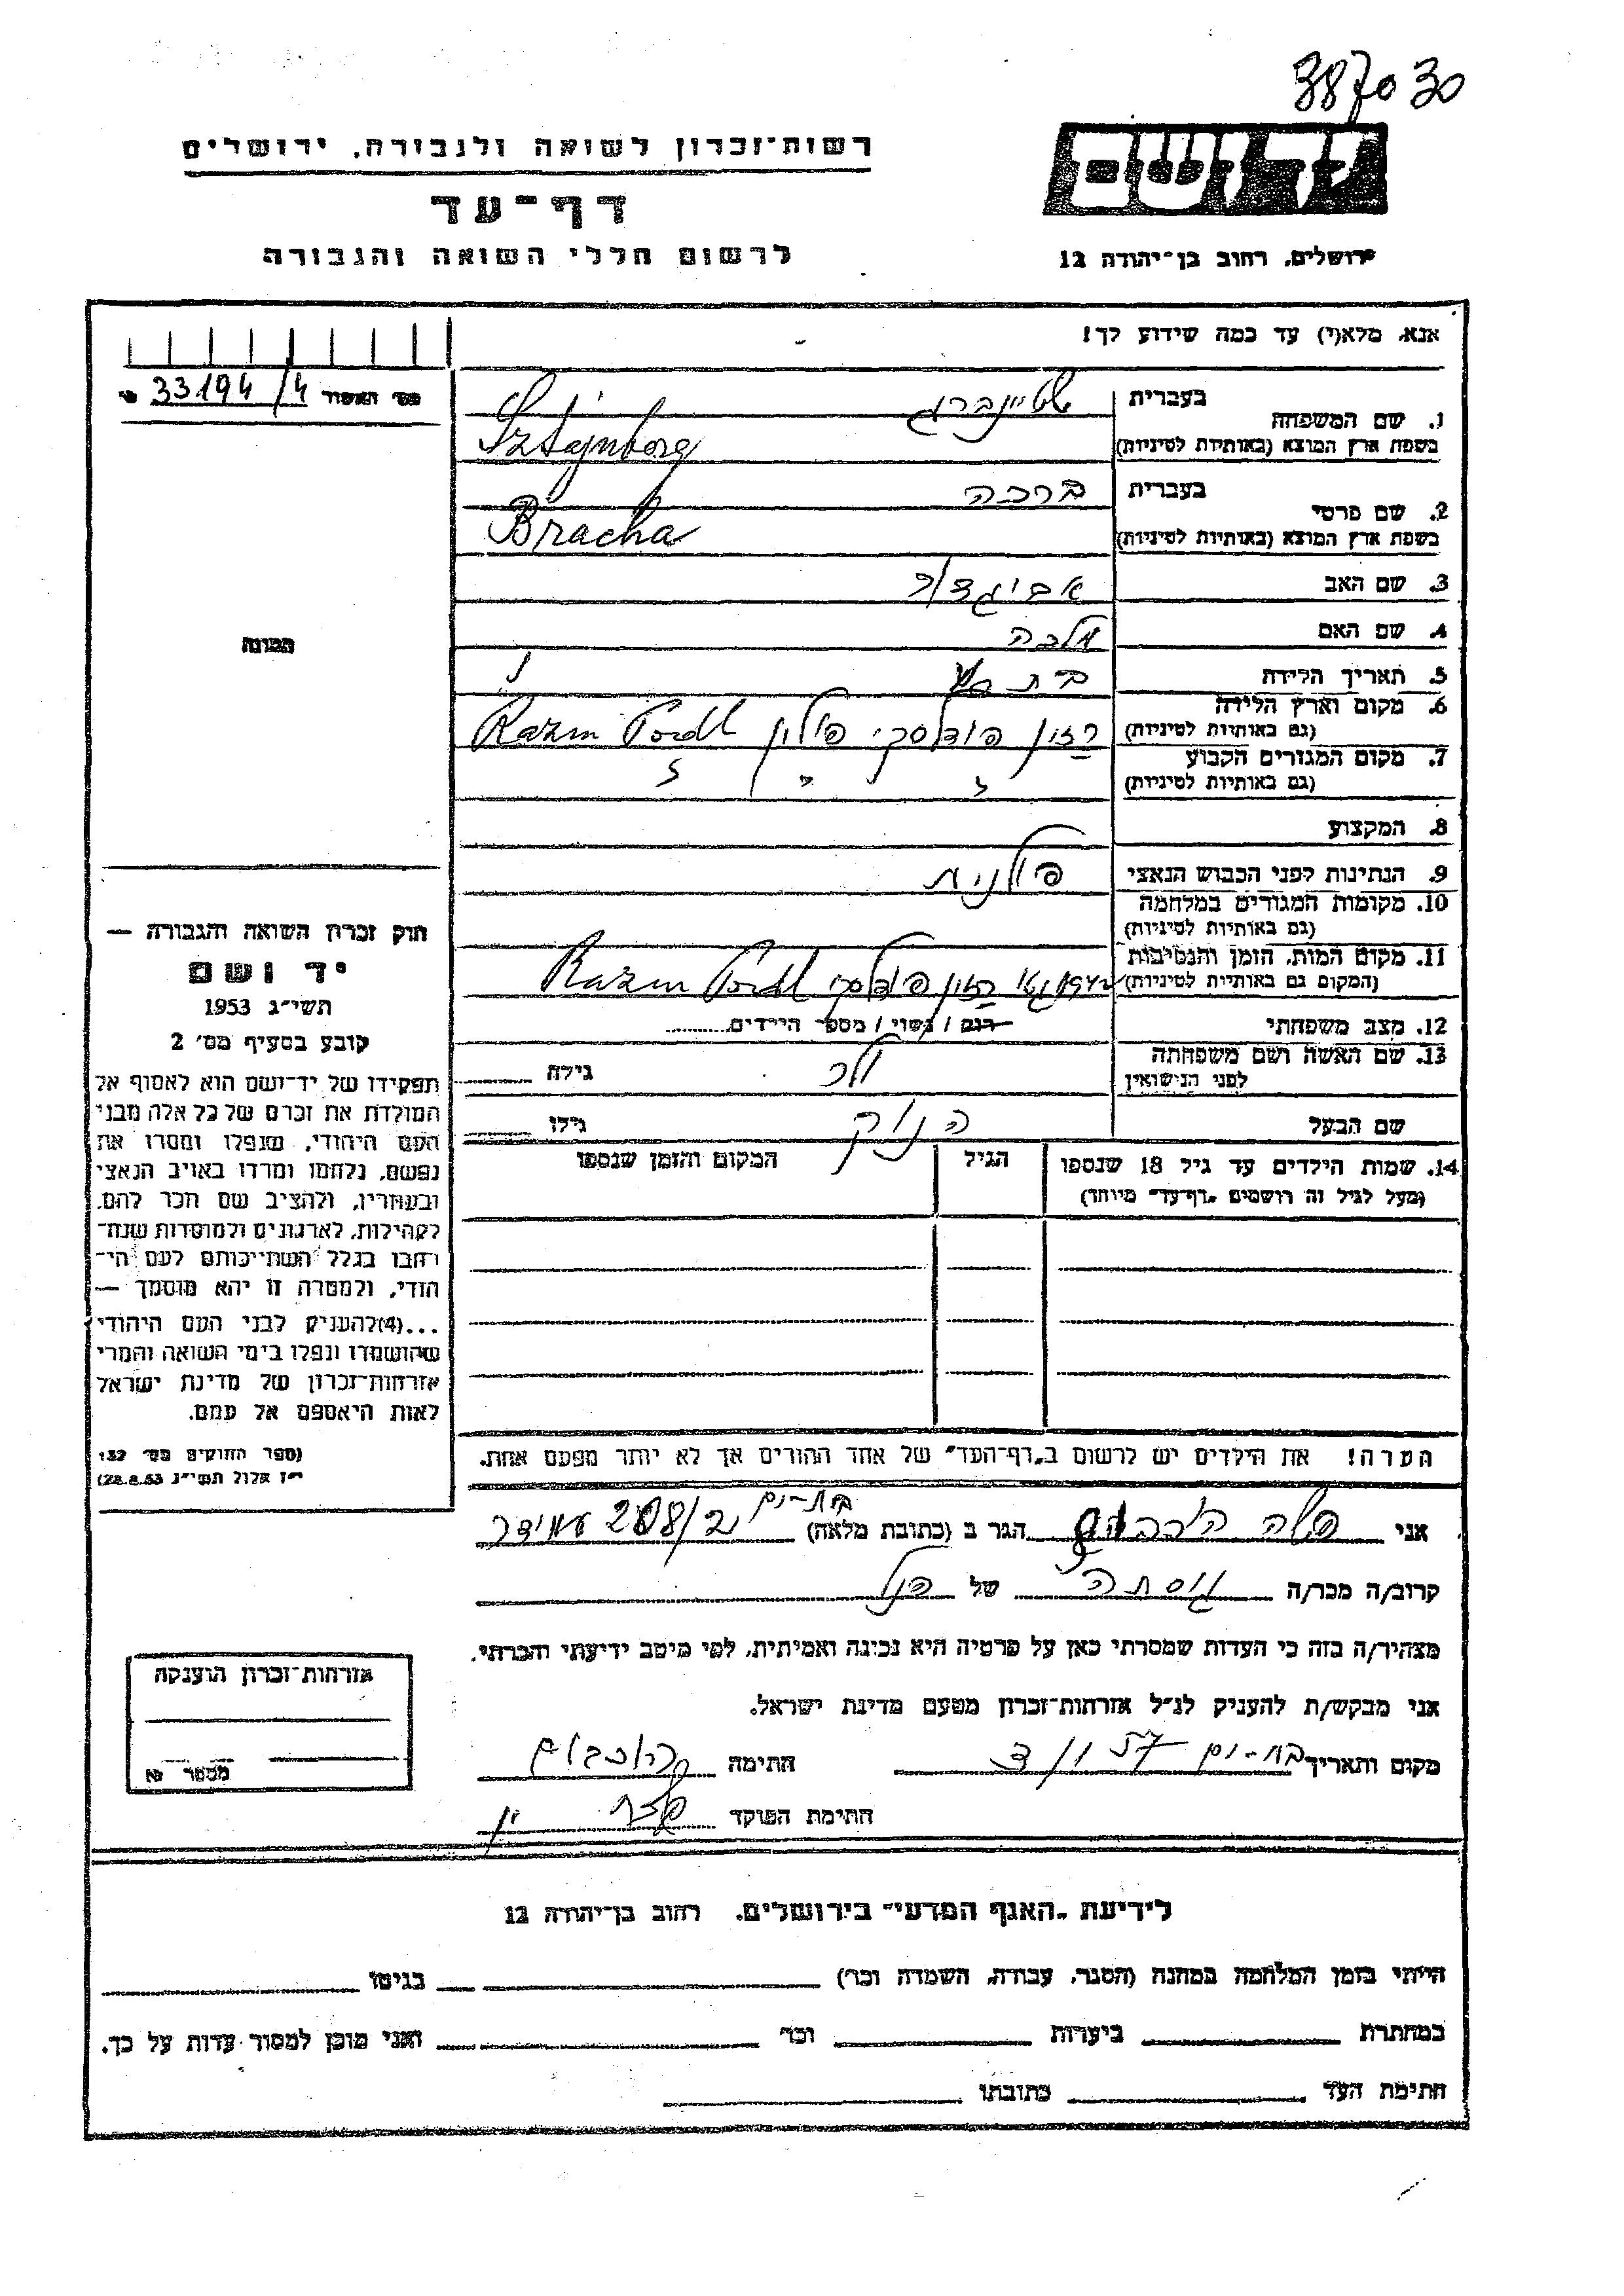 387030
רשות־זכרון לשואה ולגבורה, ירושלים
דף־עד
לרשום חללי השואה והגבורה
יד ושם
ירושלים, רחוב בן־יהודה 12
אנא, מלא(י) עד כמה שידוע לך!
33194/4
1. שם המשפחה
בעברית שטיינברג
בשפת ארץ המוצא (באותיות לטיניות) Sztajnberg
2. שם פרטי
בעברית ברכה
בשפת ארץ המוצא (באותיות לטיניות) Bracha
3. שם האב אביגדור
4. שם האם מלכה
5. תאריך הלידה בת
6. מקום וארץ הלידה
(גם באותיות לטיניות) רזון פודלסקי פולין Razun Podl
7. מקום המגורים הקבוע
(גם באותיות לטיניות)
8. המקצוע
9. הנתינות לפני הכבוש הנאצי פולנית
10. מקומות המגורים במלחמה
(גם באותיות לטיניות)
11. מקום המות, הזמן והנסיבות
(המקום גם באותיות לטיניות) רזון פודלסקי Razun Podl
12. מצב משפחתי רווק / נשוי / מספר הילדים
13. שם האשה ושם משפחתה
לפני הנישואין
גילה
שם הבעל
גילו
14. שמות הילדים עד גיל 18 שנספו הגיל המקום והזמן שנספו
(מעל לגיל זה רושמים "דף־עד" מיוחד)
הערה! את הילדים יש לרשום ב"דף־העד" של אחד ההורים אך לא יותר מפעם אחת.
התמונה
חוק זכרון השואה והגבורה —
יד ושם
תשי״ג 1953
קובע בסעיף מס׳ 2
תפקידו של יד־ושם הוא לאסוף אל
המולדת את זכרם של כל אלה מבני
העם היהודי, שנפלו ומסרו את
נפשם, נלחמו ומרדו באויב הנאצי
ובעוזריו, ולהציב שם וזכר להם,
לקהילות, לארגונים ולמוסדות שנח־
רבו בגלל השתייכותם לעם הי־
הודי, ולמטרה זו יהא מוסמך —
...(4) להעניק לבני העם היהודי
שהושמדו ונפלו בימי השואה והמרי
אזרחות־זכרון של מדינת ישראל
לאות היאספם אל עמם.
(ספר החוקים מס׳ 132
י״ז אלול תשי״ג 28.8.53)
אני הגר ב (כתובת מלאה) בת־ים
קרוב/ה מכר/ה של
מצהיר/ה בזה כי העדות שמסרתי כאן על פרטיה היא נכונה ואמיתית, לפי מיטב ידיעתי והכרתי.
אני מבקש/ת להעניק לנ״ל אזרחות־זכרון מטעם מדינת ישראל.
מקום ותאריך בת־ים חתימה
חתימת הפוקד
אזרחות־זכרון הוענקה
מספר
לידיעת "האגף המדעי" בירושלים, רחוב בן־יהודה 12
הייתי בזמן המלחמה במחנה (הסגר, עבודה, השמדה וכו׳) בגיטו
במחתרת ביערות וכו׳ ואני מוכן למסור עדות על כך.
חתימת העד כתובתו